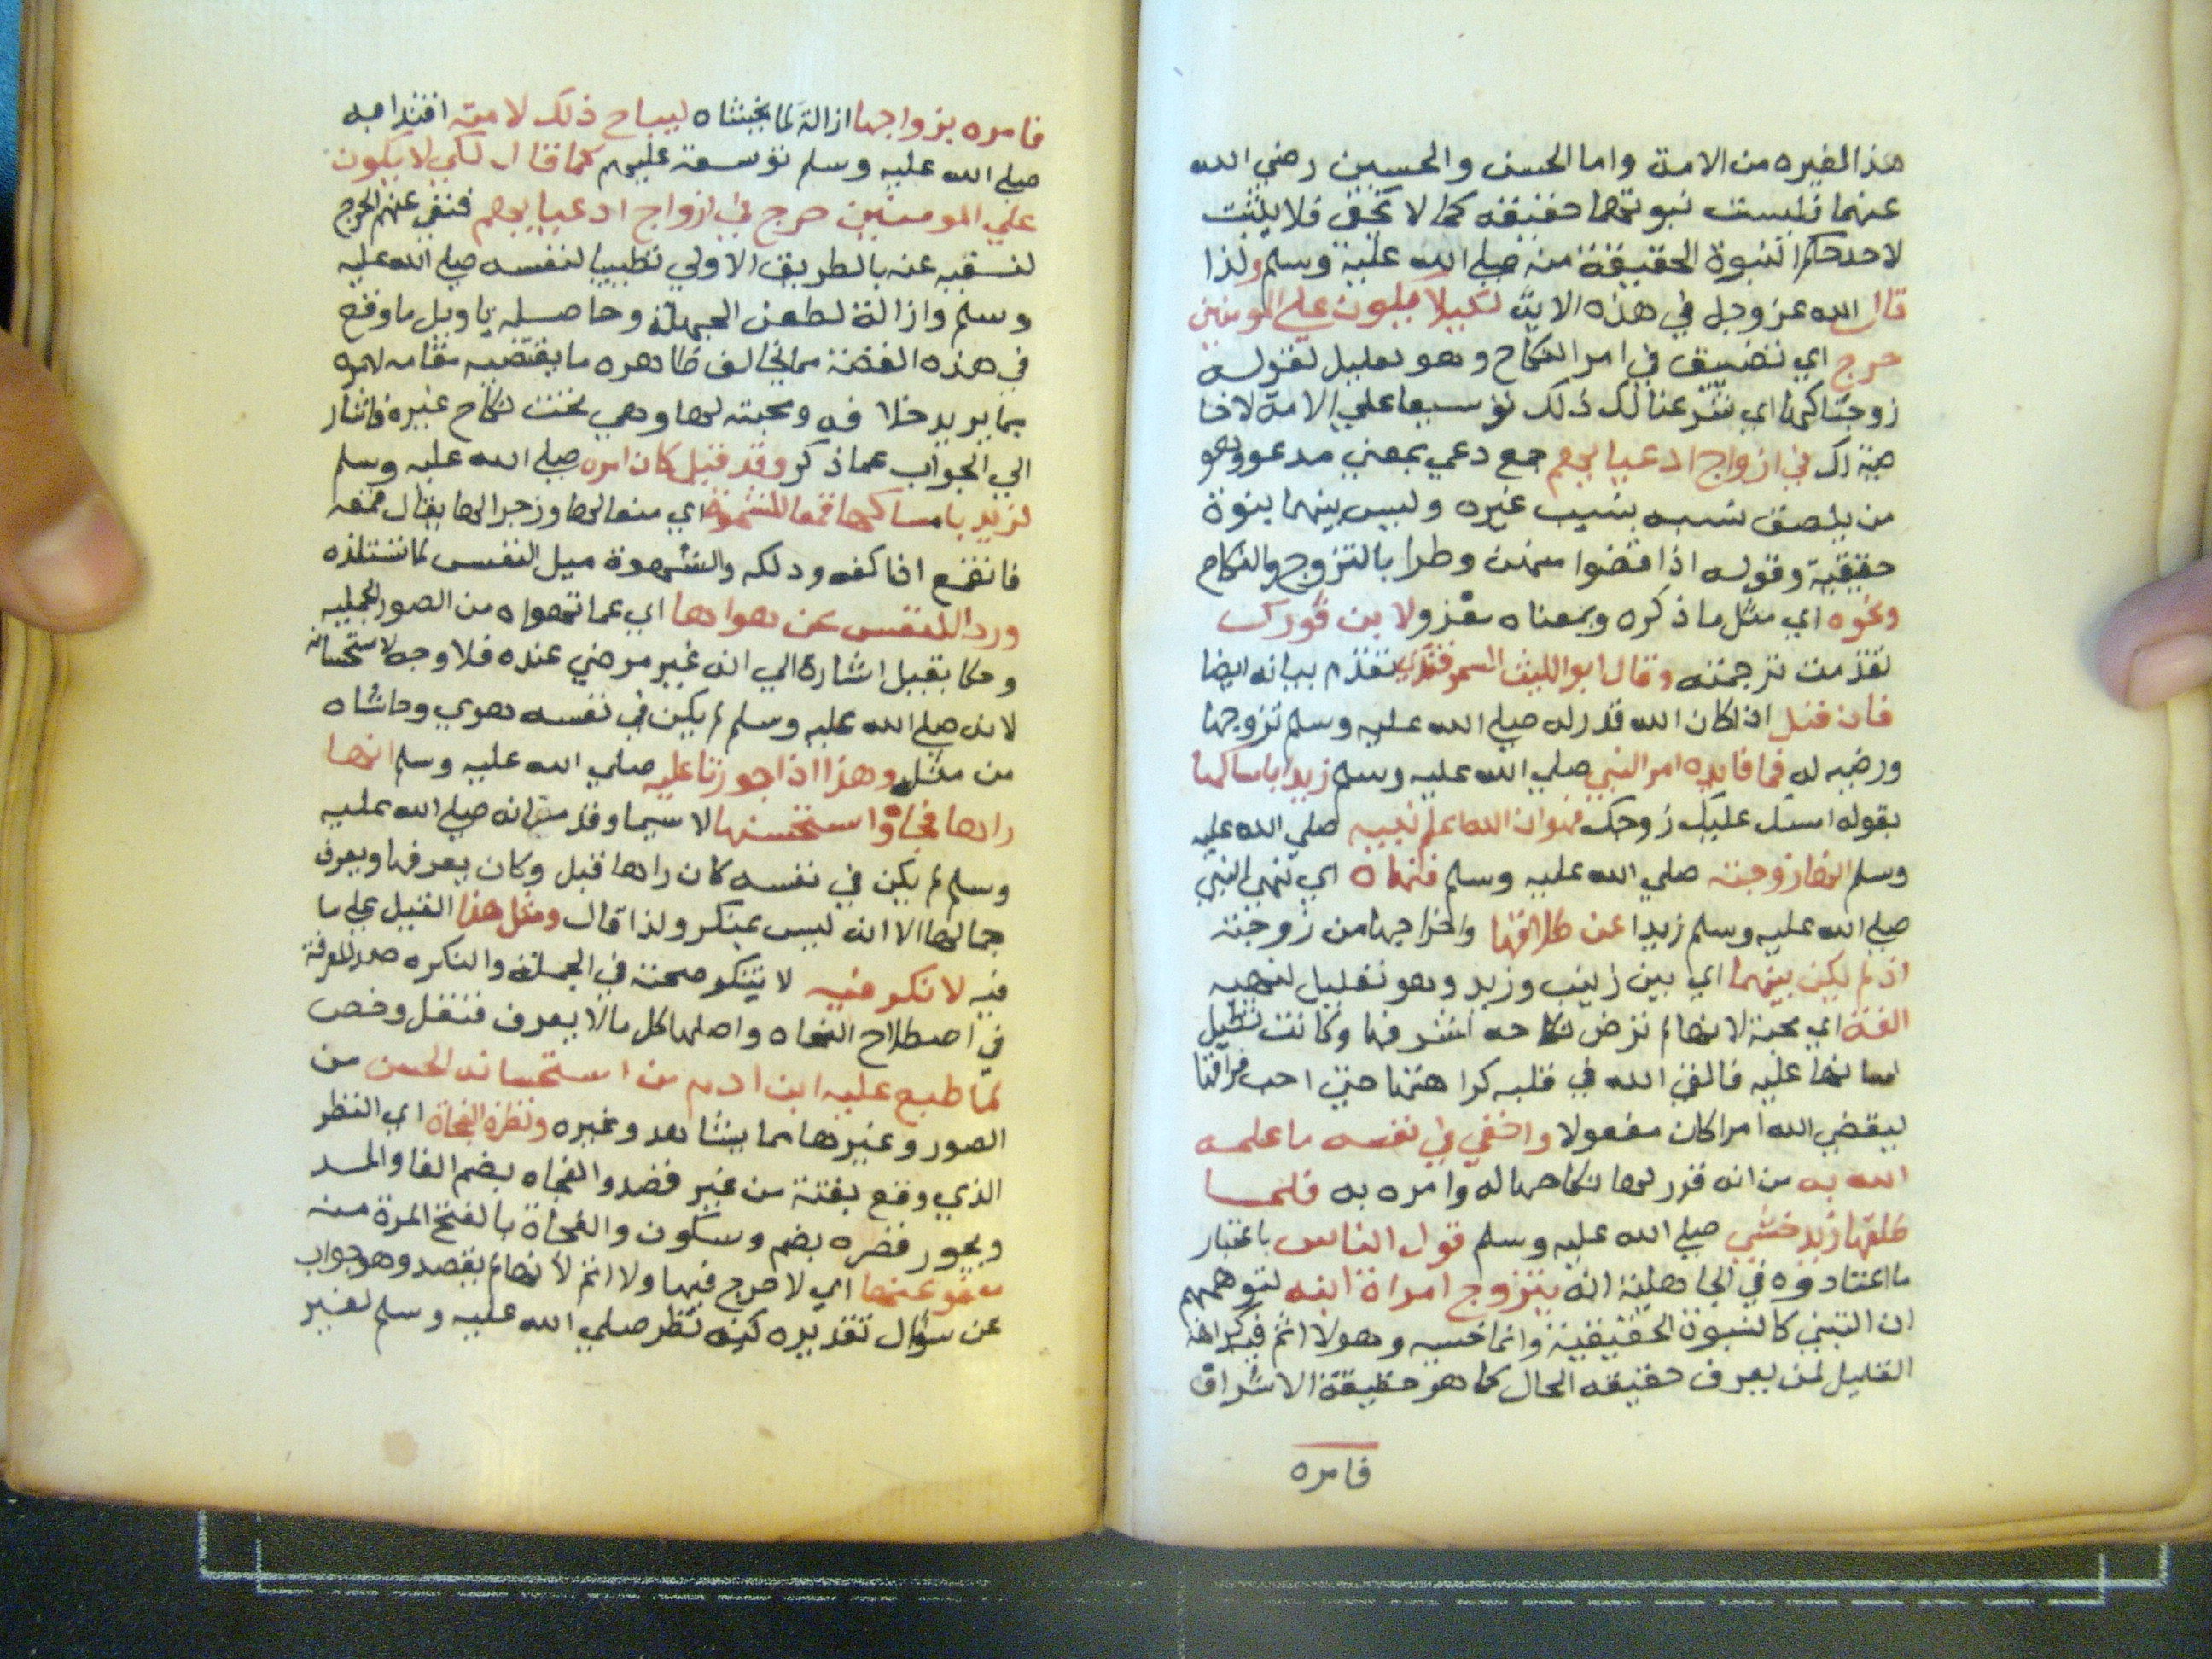 هذا لغيره من الامة واما الحسن والحسين رضي الله
عنهما فليست نبوتهما حقيقه كما لا يخفى فلا يثبت
لاحد حكم النبوة الحقيقة منه صلي الله عليه وسلم ولذا
قال الله عز وجل في هذه الاية لكيلا يكون علي المومنين
حرج اي تضييق في امر النكاح وهو تعليل لقوله
زوجناكها اي شرعنا لك ذلك توسيعا علي الامة لا خا
صة لك في ازواج ادعيايهم جمع دعي بمعني مدعو وهو
من يلصق نسبه بنسب غيره وليس بينهما بنوة
حقيقية وقوله اذا قضوا منهن وطرا بالتزوج والنكاح
ونحوه اي مثل ما ذكره وبمعناه معزو لابن فورك
تقدمت ترجمته وقال ابو الليث السمرقندي تقدم بيانه ايضا
فان قيل اذا كان الله قدر له صلي الله عليه وسلم تزويجها
ورضيه له فما فايده امر النبي صلي الله عليه وسلم زيدا بامساكها
بقوله امسك عليك زوجك فهو ان الله اعلم نبيه صلي الله عليه
وسلم انها زوجته صلي الله عليه وسلم فنهاه اي نهي النبي
صلي الله عليه وسلم زيدا عن طلاقها واخراجها من زوجته
اذ لم يكن بينهما اي بين زينب وزيد وهو تعليل لنهيه
الفة اي محبة لانها لم ترض نكاحه لشرفها وكانت تطيل
لسانها عليه فالقي الله في قلبه كراهتها حتي احب فراقها
ليقضي الله امرا كان مفعولا واخفي في نفسه ما علمه
الله به من انه قدر لها نكاحها له وامره به فلما
طلقها زيد خشي صلي الله عليه وسلم قول الناس باعتبار
ما اعتادوه في الجاهلية انه يتزوج امراة ابنه لتوهمهم
ان التبني كالنبوة الحقيقية وانما خسيه وهو لا اثم فيه كراهة
القليل لمن يعرف حقيقه الحال كما هو حقيقة الاشراف
فامره
فامره بزواجها ازالة لما يخشاه ليباح ذلك لامته اقتدا به
صلي الله عليه وسلم توسعة عليهم كما قال لكي لا يكون
علي المومنين حرج في ازواج ادعيايهم فنفي عنهم الحرج
لنسقيه عنه بالطريق الاولي تطييبا لنفسه صلي الله عليه
وسلم وازالة لطعن الجهلة وحاصله تاويل ما وقع
في هذه القصة مما يخالف ظاهره ما يقتضيه مقامه لامره
بما يريد خلافه ومحبته لها وهي تحت نكاح غيره فاشار
الي الجواب عما ذكر وقد قيل كان امره صلي الله عليه وسلم
لزيد بامساكها قمعا للشهوة اي منعا لها وزجرا لها يقال قمعه
فانقمع اذا كفه وذلكه والشهوة ميل النفس لما تستلذه
وردا للنفس عن هواها اي عما تهواه من الصور الجميلة
وحكا بقيل اشارة الي انه غير مرضي عنده فلا وجه لاستحسانه
لانه صلي الله عليه وسلم لم يكن في نفسه هوي وحاشاه
من مثله وهذا اذا جوزنا عليه صلي الله عليه وسلم انها
راها فجاة واستحسنها لا سيما وقد مر انه صلي الله عليه
وسلم لم يكن في نفسه كان راها قبل وكان يعرفها ويعرف
جمالها الا انه ليس بمنكر ولذا قال ومثل هذا القيل علي ما
فيه لا نكر فيه لا يتنكر صحته في الجملة والنكره ضد المعرفة
في اصطلاح النحاه واصلها كل ما لا يعرف فنقل وخص
لما طبع عليه ابن ادم من استحسانه الحسن من
الصور وغيرها مما يشاهد وغيره ونظرة الفجاة اي النظر
الذي وقع بغتة من غير قصد والفجاه بضم الفا والمد
ويجوز قصره بضم وسكون والفجاة بالفتح المرة منه
معفو عنها اي لا حرج فيها ولا اثم لانها لم يقصد وهو جواب
عن سؤال تقديره كيف نظر صلي الله عليه وسلم لغير